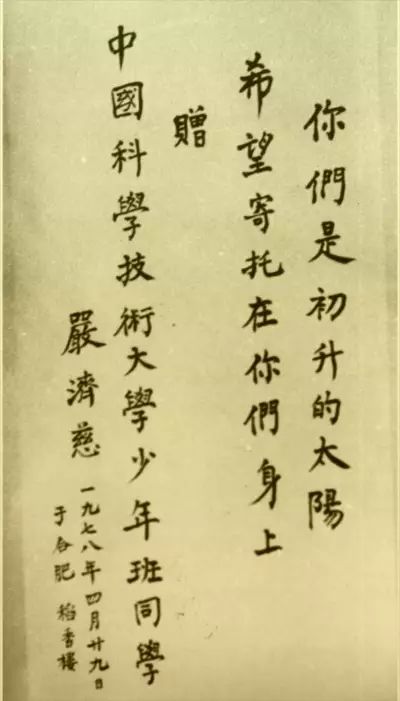 你們是初升的太陽
希望寄托在你們身上
贈
中國科學技術大學少年班同學
嚴濟慈
一九七八年四月廿九日
于合肥 稻香樓